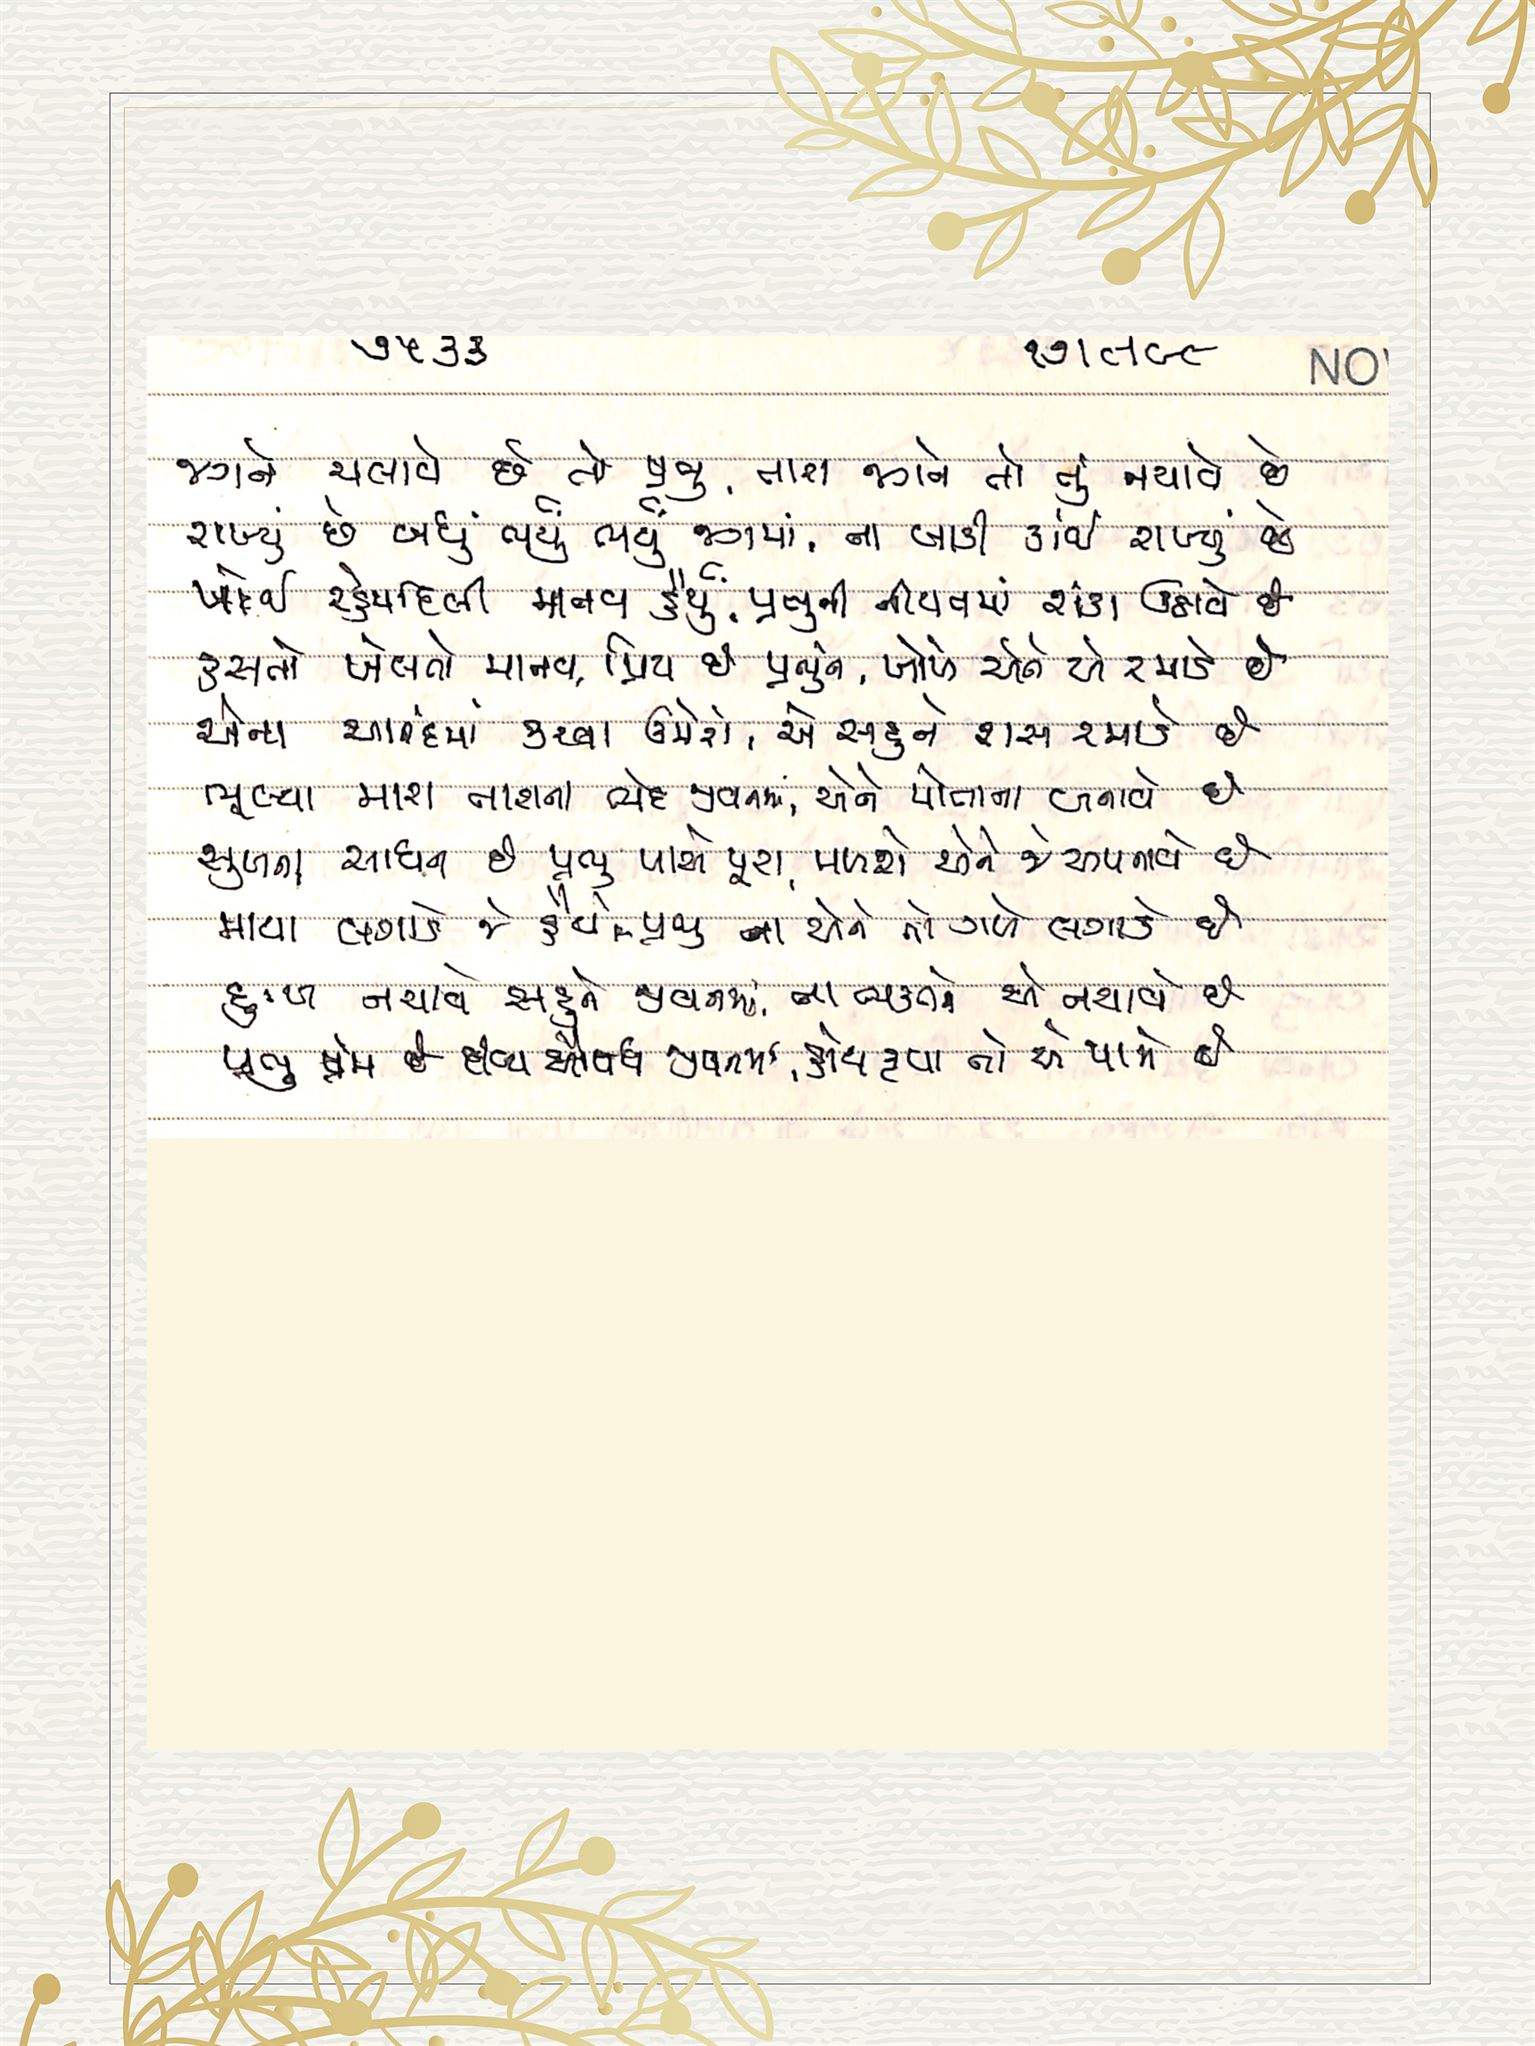 ૭૫૩૩
૧૭।૯૮૯ NO
જગને ચલાવે છે તો પ્રભુ, તારા જગને તો તું નચાવે છે
રાખ્યું છે બધું ભર્યું ભર્યું જગમાં, ના બાકી કાંઈ રાખ્યું છે
ખોઈ રહેમદિલી માનવ હૈયું, પ્રભુની નીયતમાં શંકા ઉઠાવે છે
હસતો ખેલતો માનવ, પ્રિય છે પ્રભુને, ખોળે એને એ રમાડે છે
એના આનંદમાં હરવા ઉમેરો, એ સહુને રાસ રમાડે છે
ભૂલ્યા મારા તારાના ભેદ જીવનમાં, એને પોતાના બનાવે છે
સુખના સાધન છે પ્રભુ પાસે પૂરા, મળશે એને જે અપનાવે છે
માયા લગાડે જે હૈયે પ્રભુ ના એને તો ગળે લગાડે છે
દુઃખ નચાવે સહુને જીવનમાં, ના ભક્તને એ નચાવે છે
પ્રભુ પ્રેમ છે દીવ્ય ઔષધ જીવનમાં, હોય કૃપા તો એ પામે છે